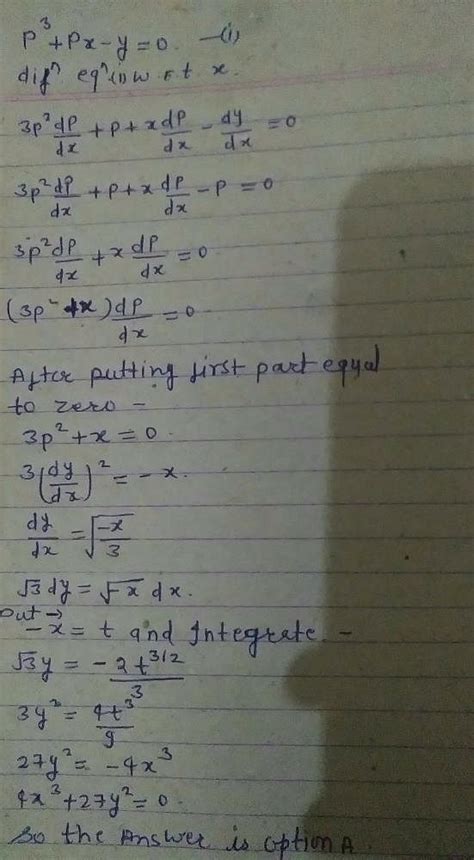 p³+Px-y=0. —(i)
difⁿ eqⁿ(i) w.r.t x.
3p² dP/dx + p + x dP/dx - dy/dx = 0
3p² dP/dx + p + x dP/dx - p = 0
3p² dP/dx + x dP/dx = 0
(3p² + x) dP/dx = 0
After putting first part equal
to zero -
3p² + x = 0.
3(dy/dx)² = -x.
dy/dx = √(-x/3)
√3 dy = √-x dx.
Put →
-x = t and Integrate. -
√3y = -2t^3/2 / 3
3y² = 4t³/9
27y² = -4x³
4x³+27y²=0.
So the Answer is option A.